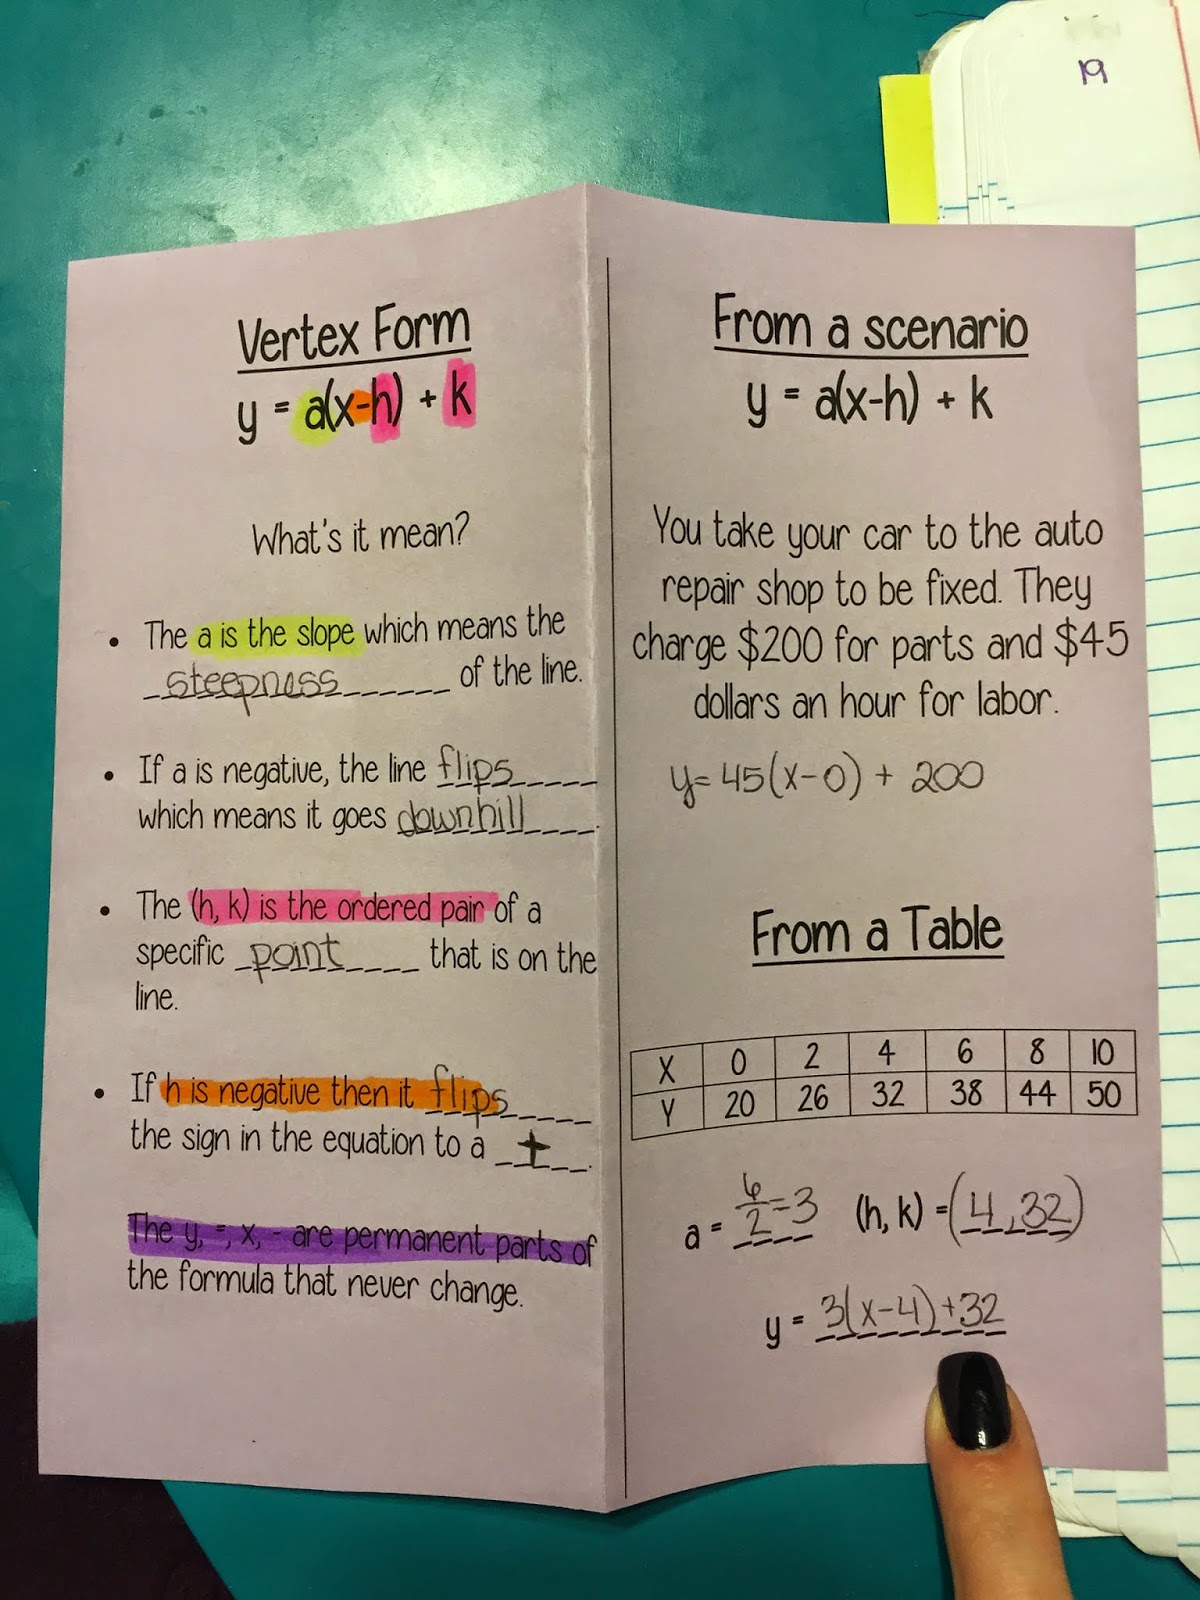 19
Vertex Form
y = a(x-h) + k
What's it mean?
• The a is the slope which means the
steepness of the line.
• If a is negative, the line flips
which means it goes downhill.
• The (h, k) is the ordered pair of a
specific point that is on the
line.
• If h is negative then it flips
the sign in the equation to a +.
The y, =, x, - are permanent parts of
the formula that never change.
From a scenario
y = a(x-h) + k
You take your car to the auto
repair shop to be fixed. They
charge $200 for parts and $45
dollars an hour for labor.
y=45(x-0) + 200
From a Table
X 0 2 4 6 8 10
Y 20 26 32 38 44 50
a = 6/2=3 (h, k) =(4,32)
y = 3(x-4)+32